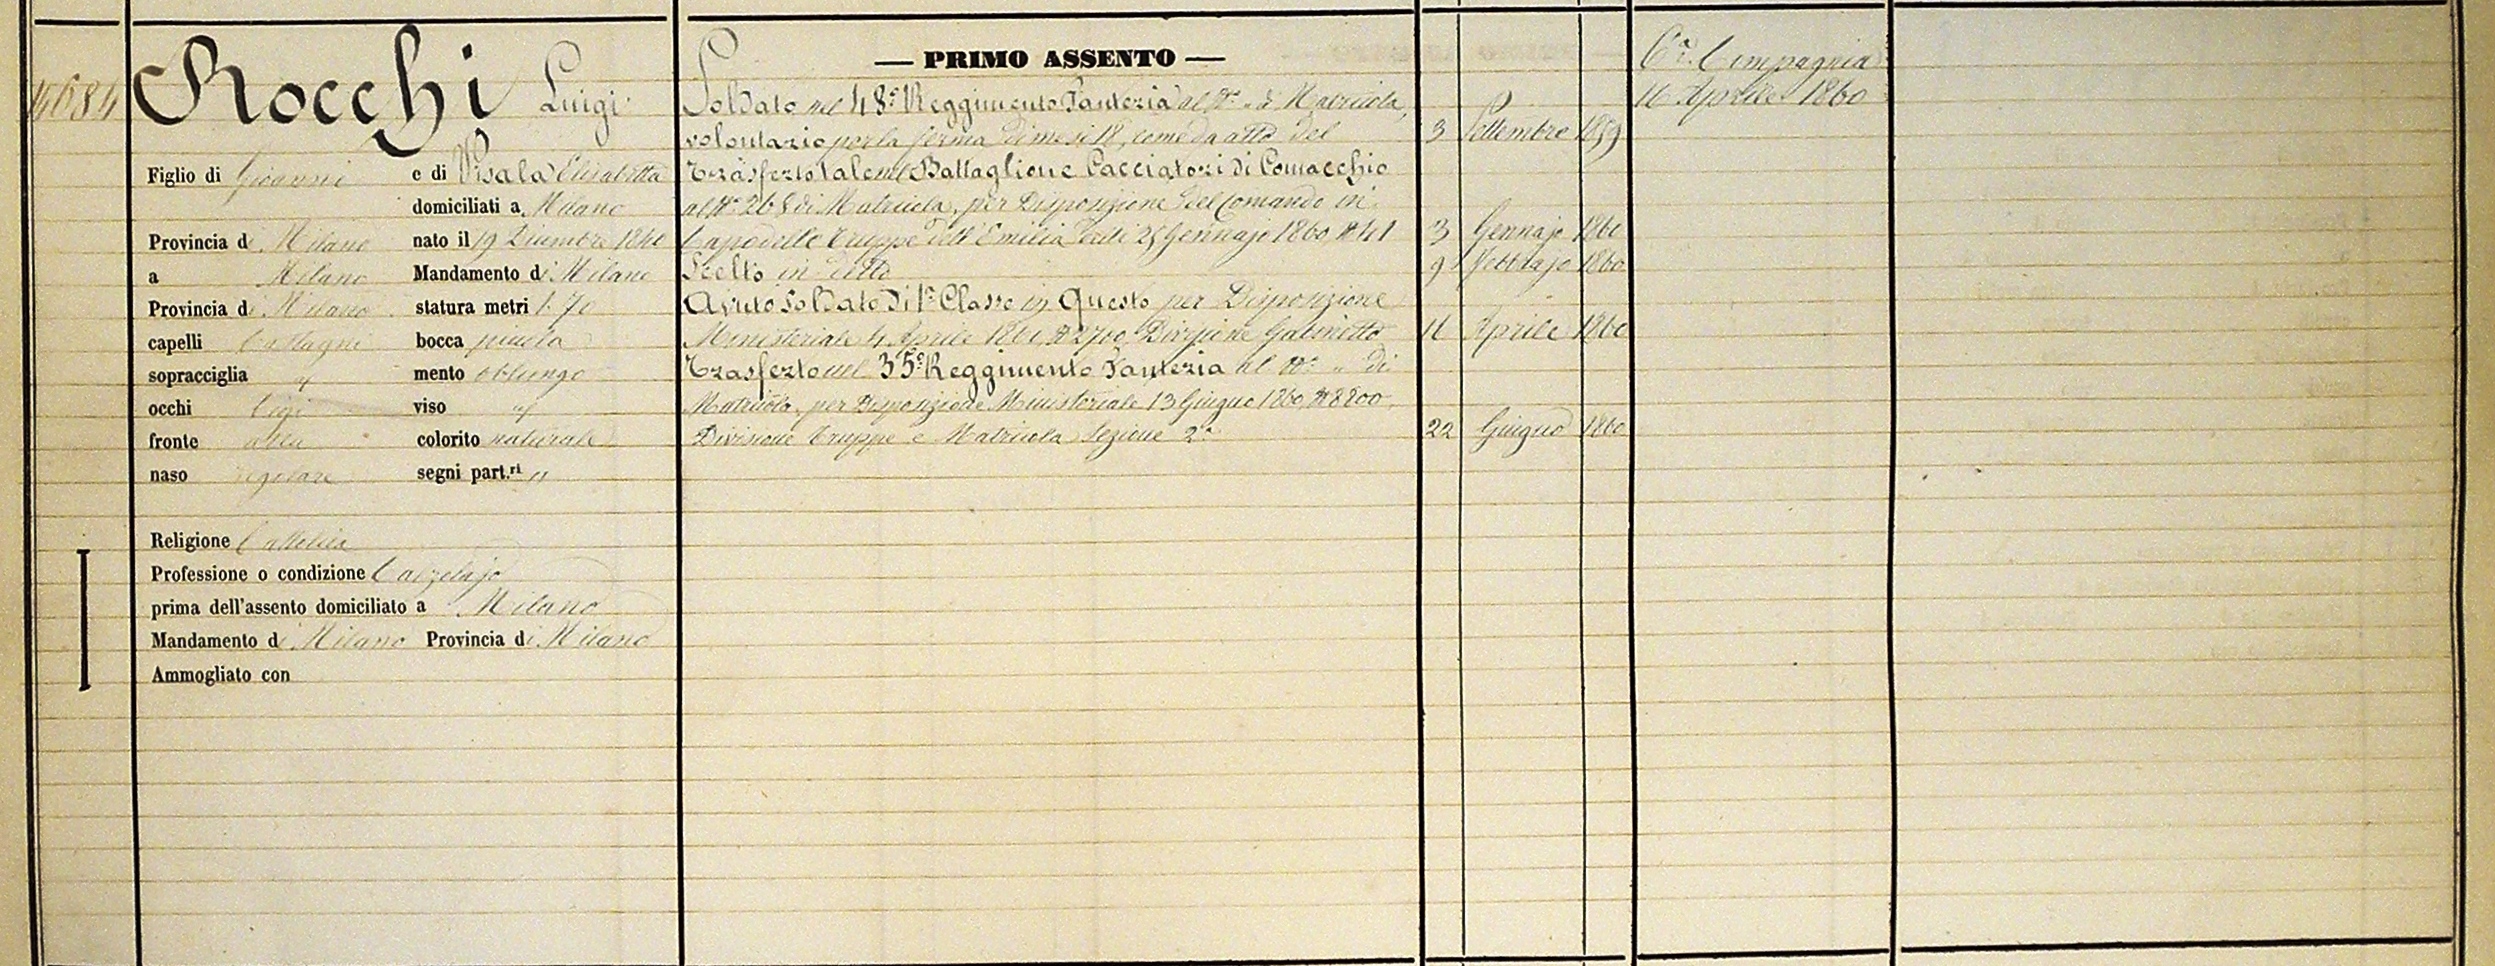 4684
Rocchi Luigi
Figlio di Giovanni e di Visala Elisabetta
domiciliati a Milano
Provincia di Milano nato il 19 Dicembre 1840
a Milano Mandamento di Milano
Provincia di Milano statura metri 1.70
capelli Castagni bocca piccola
sopracciglia " mento oblungo
occhi bigi viso "
fronte alta colorito naturale
naso regolare segni part.ri "
Religione Cattolica
Professione o condizione Calzolajo
prima dell'assento domiciliato a Milano
Mandamento di Milano Provincia di Milano
Ammogliato con
— PRIMO ASSENTO —
Soldato nel 48º Reggimento Fanteria al Nº " di Matricola,
volontario per la ferma di mesi 18, come da atto del 3 Settembre 1859
Trasferto tale nel Battaglione Cacciatori di Comacchio
al Nº 268 di Matricola, per Disposizione del Comando in
Capo delle Truppe dell'Emilia delli 25 Gennajo 1860 Nº 41 3 Gennajo 1860
Scelto in detto 9 Febbrajo 1860
Avuto Soldato di 1ª Classe in Questo per Disposizione
Ministeriale 4 Aprile 1860, Nº 2700, Divisione Gabinetto 16 Aprile 1860
Trasferto nel 35º Reggimento Fanteria al Nº " di
Matricola, per Disposizione Ministeriale 13 Giugno 1860, Nº 8800
Divisione Truppe e Matricola Sezione 2ª 22 Giugno 1860
6ª Compagnia
16 Aprile 1860